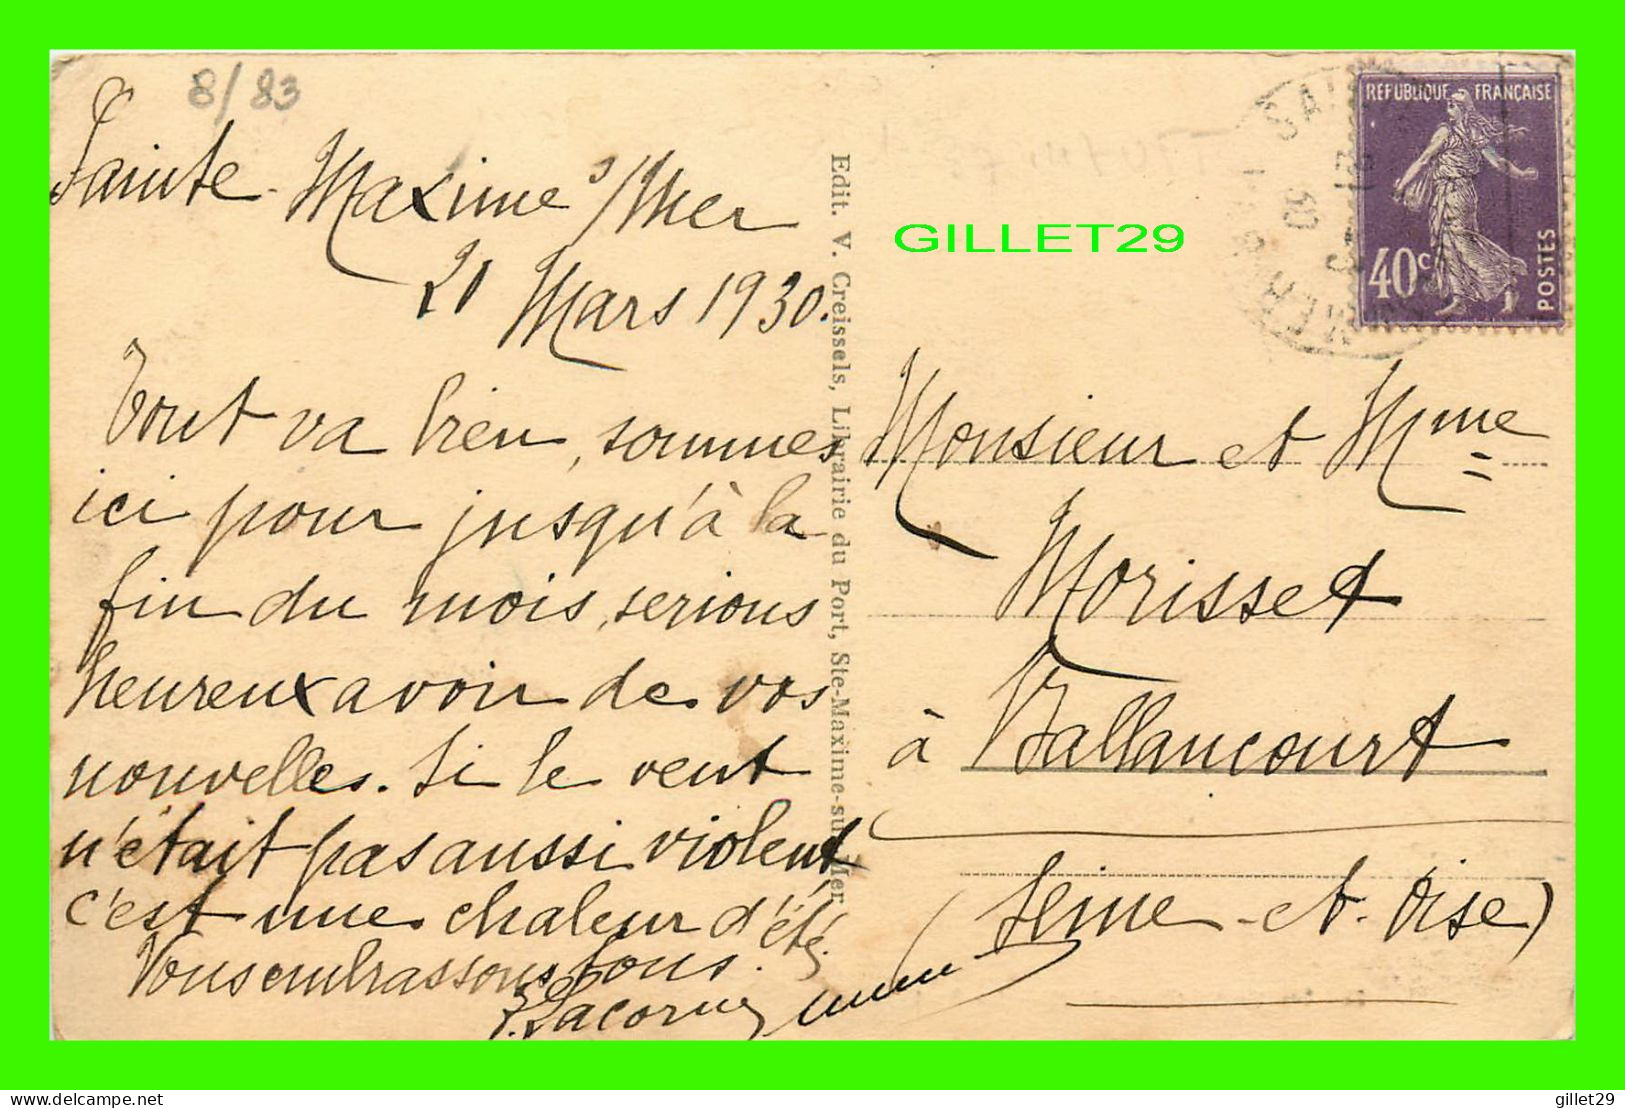 8/83
Sainte-Maxime s/Mer
21 Mars 1930.
Tout va bien, sommes
ici pour jusqu'à la
fin du mois, serions
heureux avoir de vos
nouvelles. Si le vent
n'était pas aussi violent
c'est une chaleur d'été.
Vous embrassons tous.
Edit. V. Creissels, Librairie du Port, Ste-Maxime-sur-Mer
GILLET29
REPUBLIQUE FRANÇAISE
40c
POSTES
Monsieur et Mme
Morisset
à Ballancourt
(Seine-et-Oise)
delcampe.net
gillet29